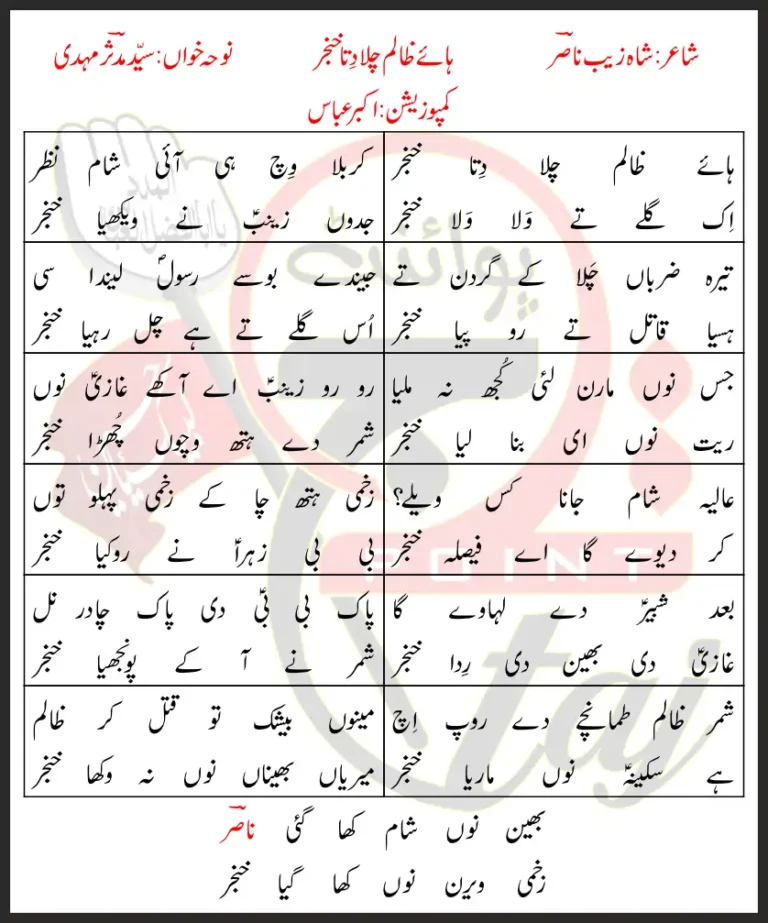 شاعر: شاہ زیب ناصر
ہائے ظالم چلا دِتا خنجر
نوحہ خواں: سیّد مدثر مہدی
کمپوزیشن: اکبر عباس
ہائے ظالم چلا دِتا خنجر
اِک گلے تے وَلا وَلا خنجر
کربلا وِچ ہی آئی شام نظر
جدوں زینبؑ نے ویکھیا خنجر
تیرہ ضرباں چَلا کے گردن تے
ہسیا قاتل تے رو پیا خنجر
جیندے بوسے رسولؐ لیندا سی
اُس گلے تے ہے چل رہیا خنجر
جس نوں مارن لئی کُجھ نہ ملیا
ریت نوں ای بنا لیا خنجر
رو رو زینبؑ اے آکھے غازیؑ نوں
شمر دے ہتھ وچوں چُھڑا خنجر
عالیہ شام جانا کس ویلے؟
کر دیوے گا اے فیصلہ خنجر
زخمی ہتھ چا کے زخمی پہلو توں
بی بی زہراؑ نے روکیا خنجر
بعد شبیرؑ دے لہاوے گا
غازیؑ دی بھین دی رِدا خنجر
پاک بی بیؑ دی پاک چادر نل
شمر نے آ کے پونجھیا خنجر
شمر ظالم طمانچے دے روپ اِچ
ہے سکینہؑ نوں ماریا خنجر
مینوں بیشک تو قتل کر ظالم
میریاں بھیناں نوں نہ وکھا خنجر
بھین نوں شام کھا گئی ناصر
زخمی ویرن نوں کھا گیا خنجر
پوائنٹ
POINT
taj